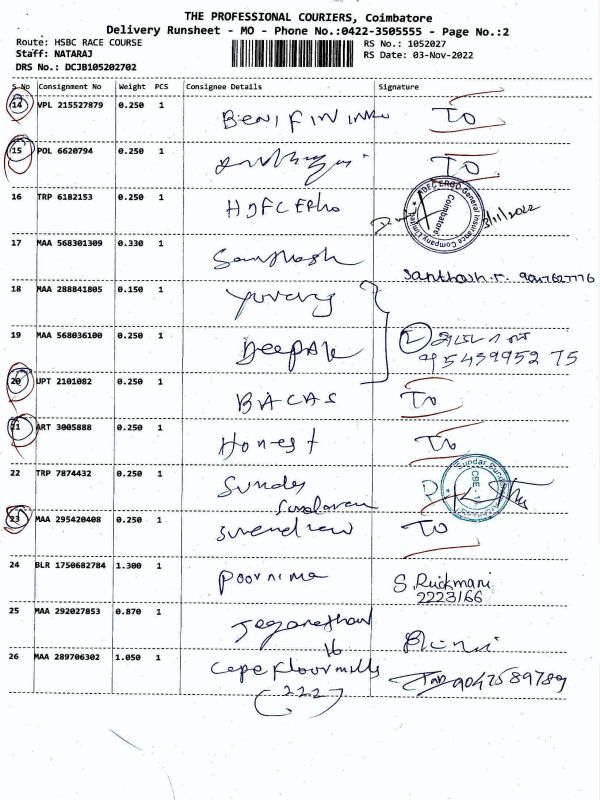 THE PROFESSIONAL COURIERS, Coimbatore
Delivery Runsheet - MO - Phone No.:0422-3505555 - Page No.:2
Route: HSBC RACE COURSE
RS No.: 1052027
Staff: NATARAJ
RS Date: 03-Nov-2022
DRS No.: DCJB105202702
S.No Consignment No Weight PCS Consignee Details Signature
14 VPL 215527879 0.250 1 TO
15 POL 6620794 0.250 1 TO
16 TRP 6182153 0.250 1 HDFC Ergo
HDFC ERGO General Insurance Company Limited Coimbatore
3/11/2022
17 MAA 568301309 0.330 1 Santhosh
Santhosh.r.
18 MAA 288841805 0.150 1 Yuvaraj
19 MAA 568036100 0.250 1 Deepak
20 UPT 2101082 0.250 1 BACAS TO
21 ART 3005888 0.250 1 Honest TO
22 TRP 7874432 0.250 1 Sundar
Sundaram
23 MAA 295420408 0.250 1 Surendran TO
24 BLR 1750682784 1.300 1 Poornima S. Rukmani
2223166
25 MAA 292027853 0.870 1 Jeganathan
16
26 MAA 289706302 1.050 1 Cape flour mills 9047589789
(222)